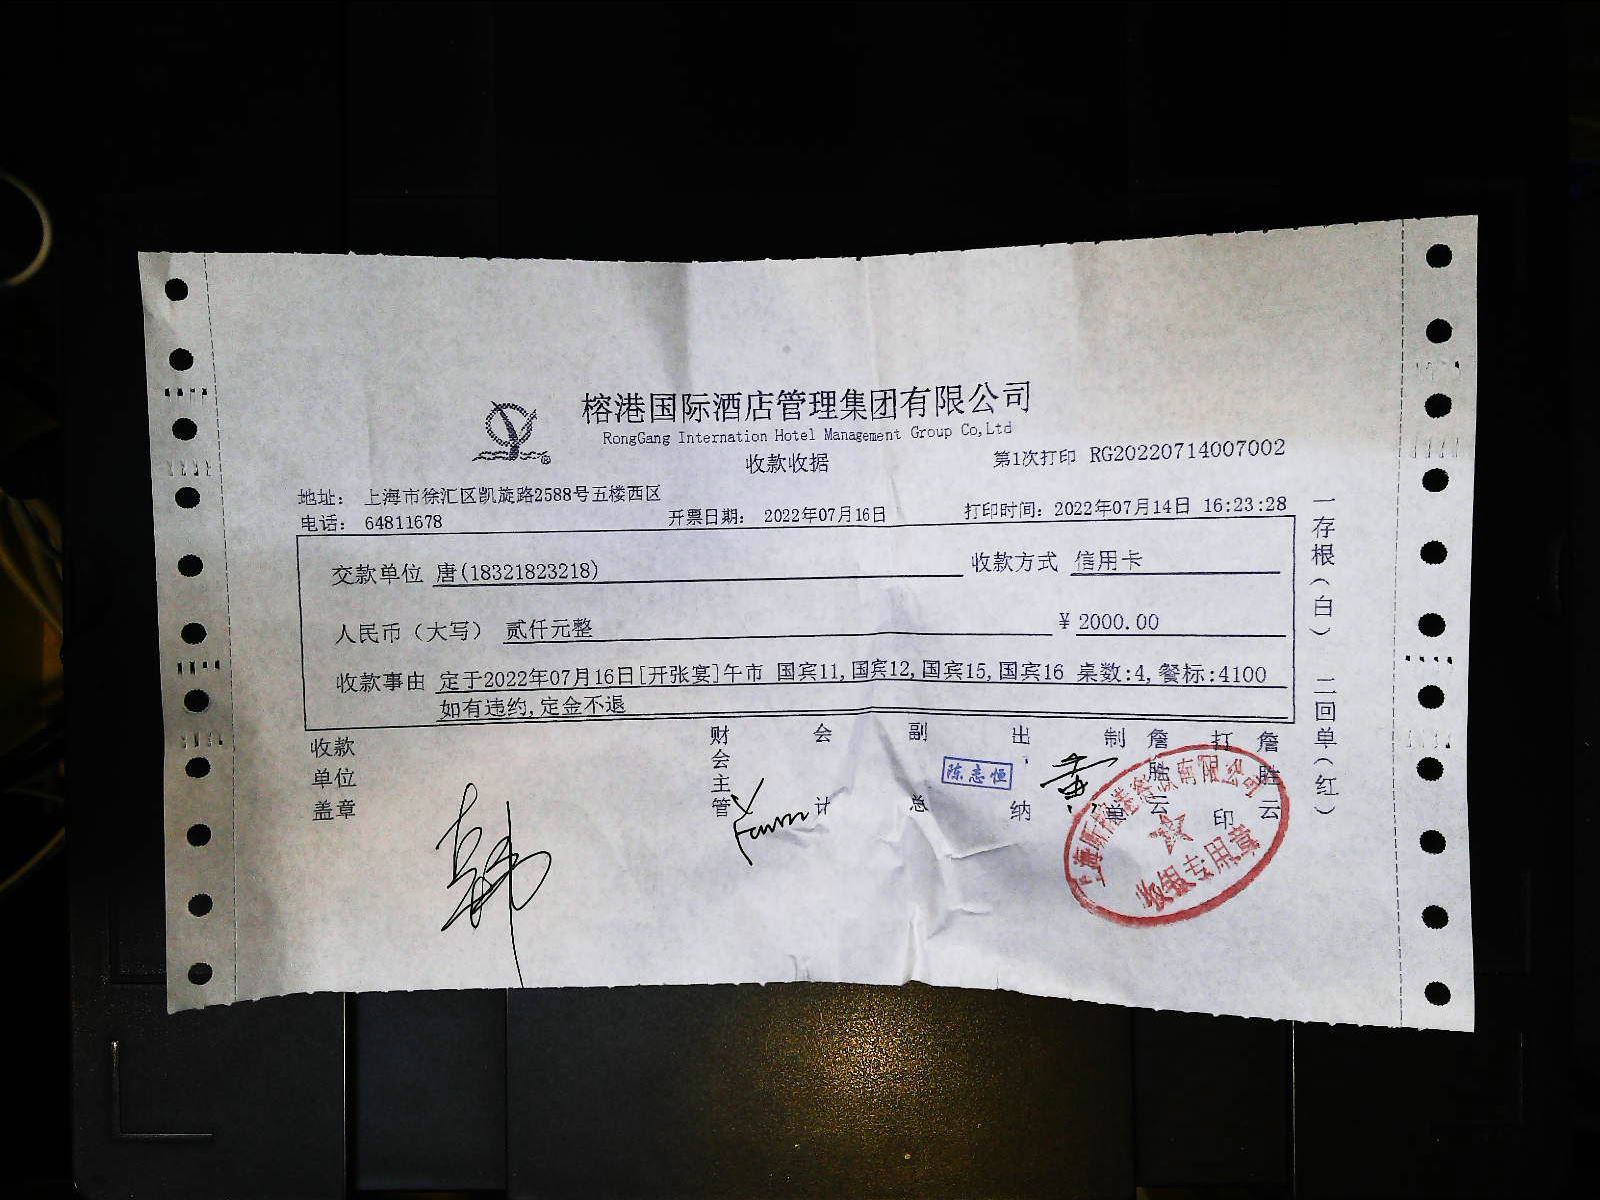 榕港国际酒店管理集团有限公司
RongGang Internation Hotel Management Group Co,Ltd
收款收据
第1次打印 RG20220714007002
地址： 上海市徐汇区凯旋路2588号五楼西区
电话： 64811678 开票日期： 2022年07月16日 打印时间：2022年07月14日 16:23:28
交款单位 唐(18321823218) 收款方式 信用卡
人民币（大写） 贰仟元整 ¥ 2000.00
收款事由 定于2022年07月16日[开张宴]午市 国宾11,国宾12,国宾15,国宾16 桌数:4,餐标:4100
如有违约,定金不退
一存根(白) 二回单(红)
收款单位盖章
韩
财会主管
会计
副总
陈志恒
出纳
黄
制单
詹胜云
打印
詹胜云
收银专用章